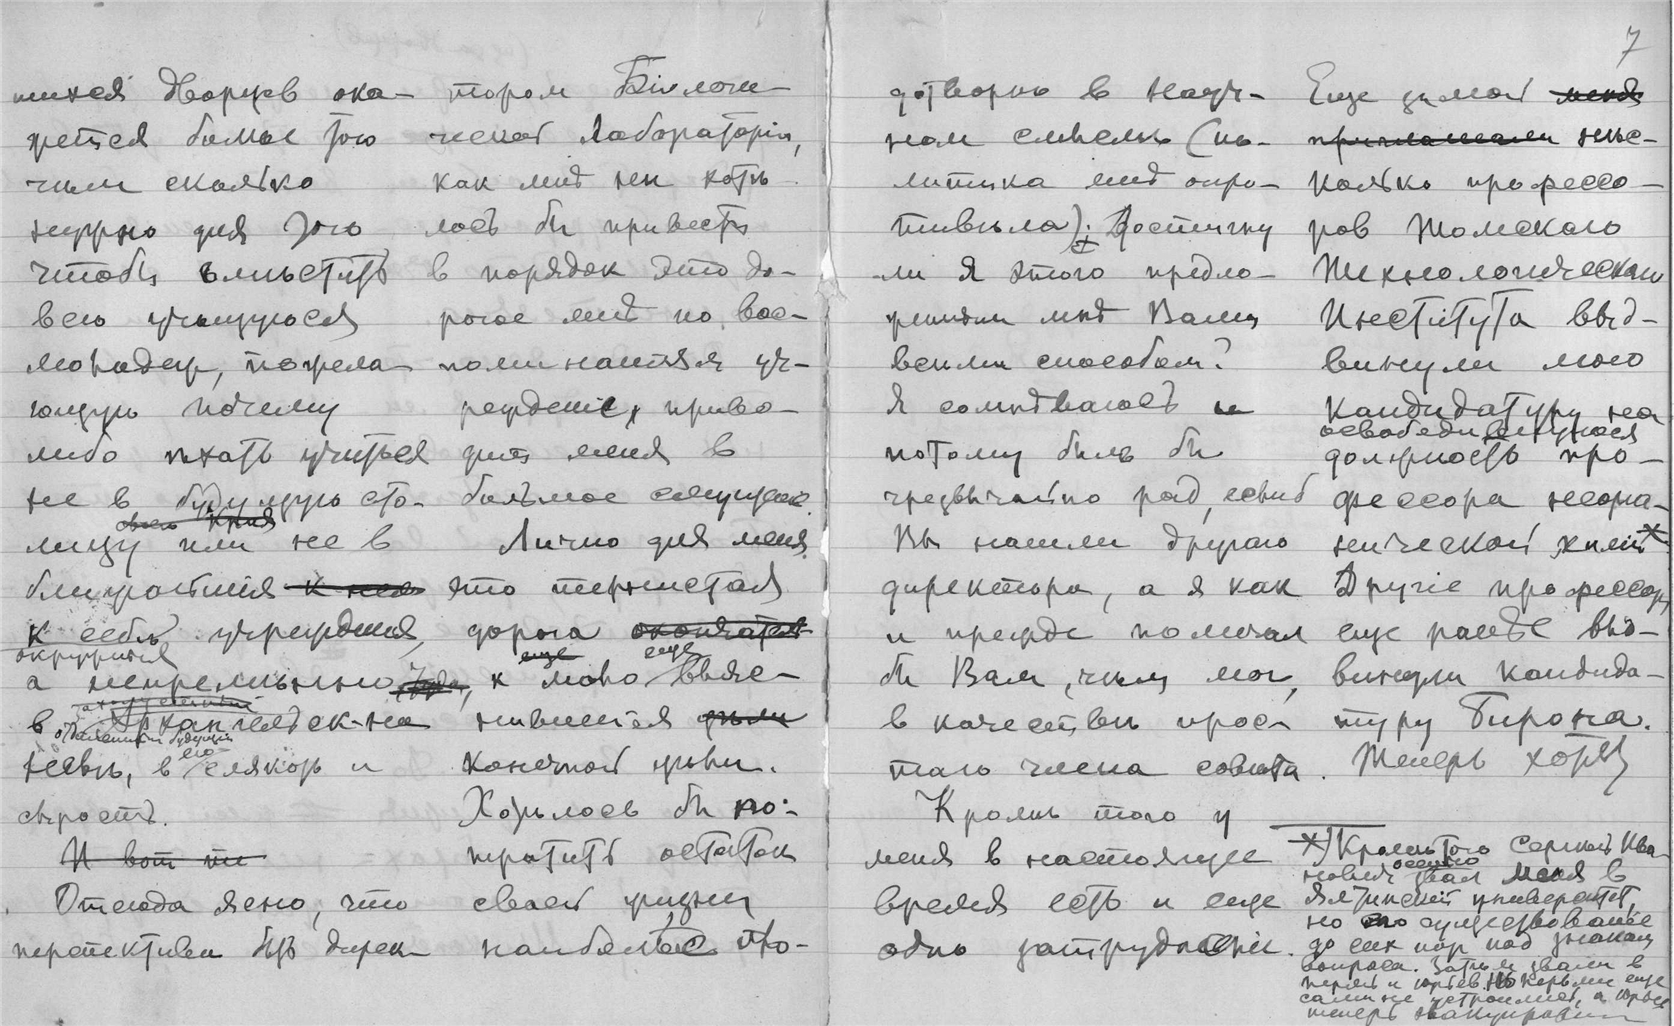 шихся дворцев ока-
жется больше того
чем сколько
нужно для того
чтобы вместить
всю учащуюся
молодежь, пожела-
ющую почему
либо ѣхать учиться
не в будущую сто-
лицу или не в
ближайшия
к себѣ учреждения,
окружныя
а непремѣнно
в Архангельск-на
Невѣ, в его слякоть и
сырость.
И вот
Отсюда ясно, что
перспектива быть дирек-
тором Біологи-
ческой Лабораторіи,
как мнѣ ни хотѣ-
лось бы привести
в порядок это до-
рогое мнѣ по вос-
поминаниям уч-
реждение, приво-
дит меня в
большое смущение.
Лично для меня
это тернистая
дорога
еще еще
к мало выяс-
нившейся
конечной цѣли.
Хотѣлось бы по-
тратить остаток
своей жизни
наиболѣе пло-
7
дотворно в науч-
ном смыслѣ (по-
литика мнѣ опро-
тивѣла). Достигну
ли я этого предло-
женным мнѣ Вами
способом?
Я сомнѣваюсь и
потому был бы
чрезвычайно рад, если б
Вы нашли другого
директора, а я как
и прежде помогал
бы Вам, чѣм мог,
в качествѣ прос-
того члена совѣта.
Кромѣ того у
меня в настоящее
время есть и еще
одно затруднение.
Еще зимой меня
приглашали нѣс-
колько профессо-
ров Томского
Технологическаго
Института выд-
винули мою
кандидатуру на
освободившуюся
должность про-
фессора неорга-
нической химіи x
Другіе профессора
еще ранѣе выд-
винули кандида-
туру Бирона.
Теперь хотя
x) Кромѣ того Сергѣй Ива-
нович осенью звал меня в
Ялтинский университет,
но его существование
до сих пор под знаком
вопроса. Затѣм звали в
Пермь и Юрьев. Но Пермь еще
сама не устроилась, а Юрьев
теперь эвакуирован